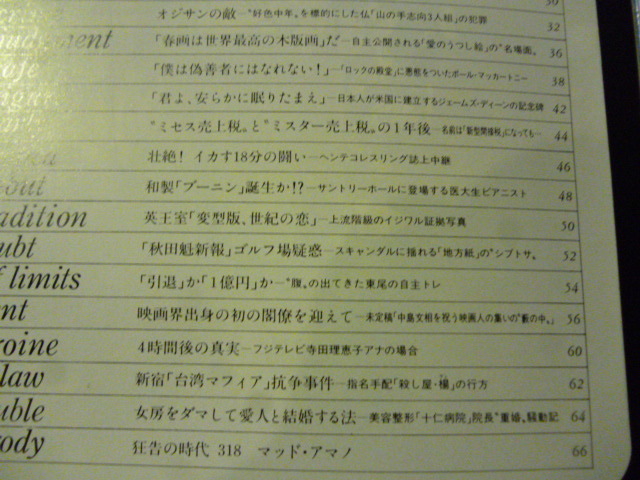 30
オジサンの敵―"好色中年"を標的にした仏「山の手志向3人組」の犯罪 32
ment 「春画は世界最高の木版画」だ―自主公開される「愛のうつし絵」の"名場面" 36
「僕は偽善者にはなれない!」―「ロックの殿堂」に悪態をついたポール・マッカートニー 38
「君よ、安らかに眠りたまえ」―日本人が米国に建立するジェームズ・ディーンの記念碑 42
"ミセス売上税"と"ミスター売上税"の1年後―名前は「新型間接税」になっても― 44
壮絶! イカす18分の闘い―ヘンテコレスリング誌上中継 46
bout 和製「ブーニン」誕生か!?―サントリーホールに登場する医大生ピアニスト 48
adition 英王室「変型版、世紀の恋」―上流階級のイジワル証拠写真 50
ubt 「秋田魁新報」ゴルフ場疑惑―スキャンダルに揺れる「地方紙」の"シブトサ" 52
f limits 「引退」か「1億円」か―"腹"の出てきた東尾の自主トレ 54
nt 映画界出身の初の閣僚を迎えて―未定稿「中島文相を祝う映画人の集いの"藪の中"」 56
roine 4時間後の真実―フジテレビ寺田理恵子アナの場合 60
law 新宿「台湾マフィア」抗争事件―指名手配「殺し屋・楊」の行方 62
uble 女房をダマして愛人と結婚する法―美容整形「十仁病院」院長"重婚"騒動記 64
rody 狂告の時代 318 マッド・アマノ 66